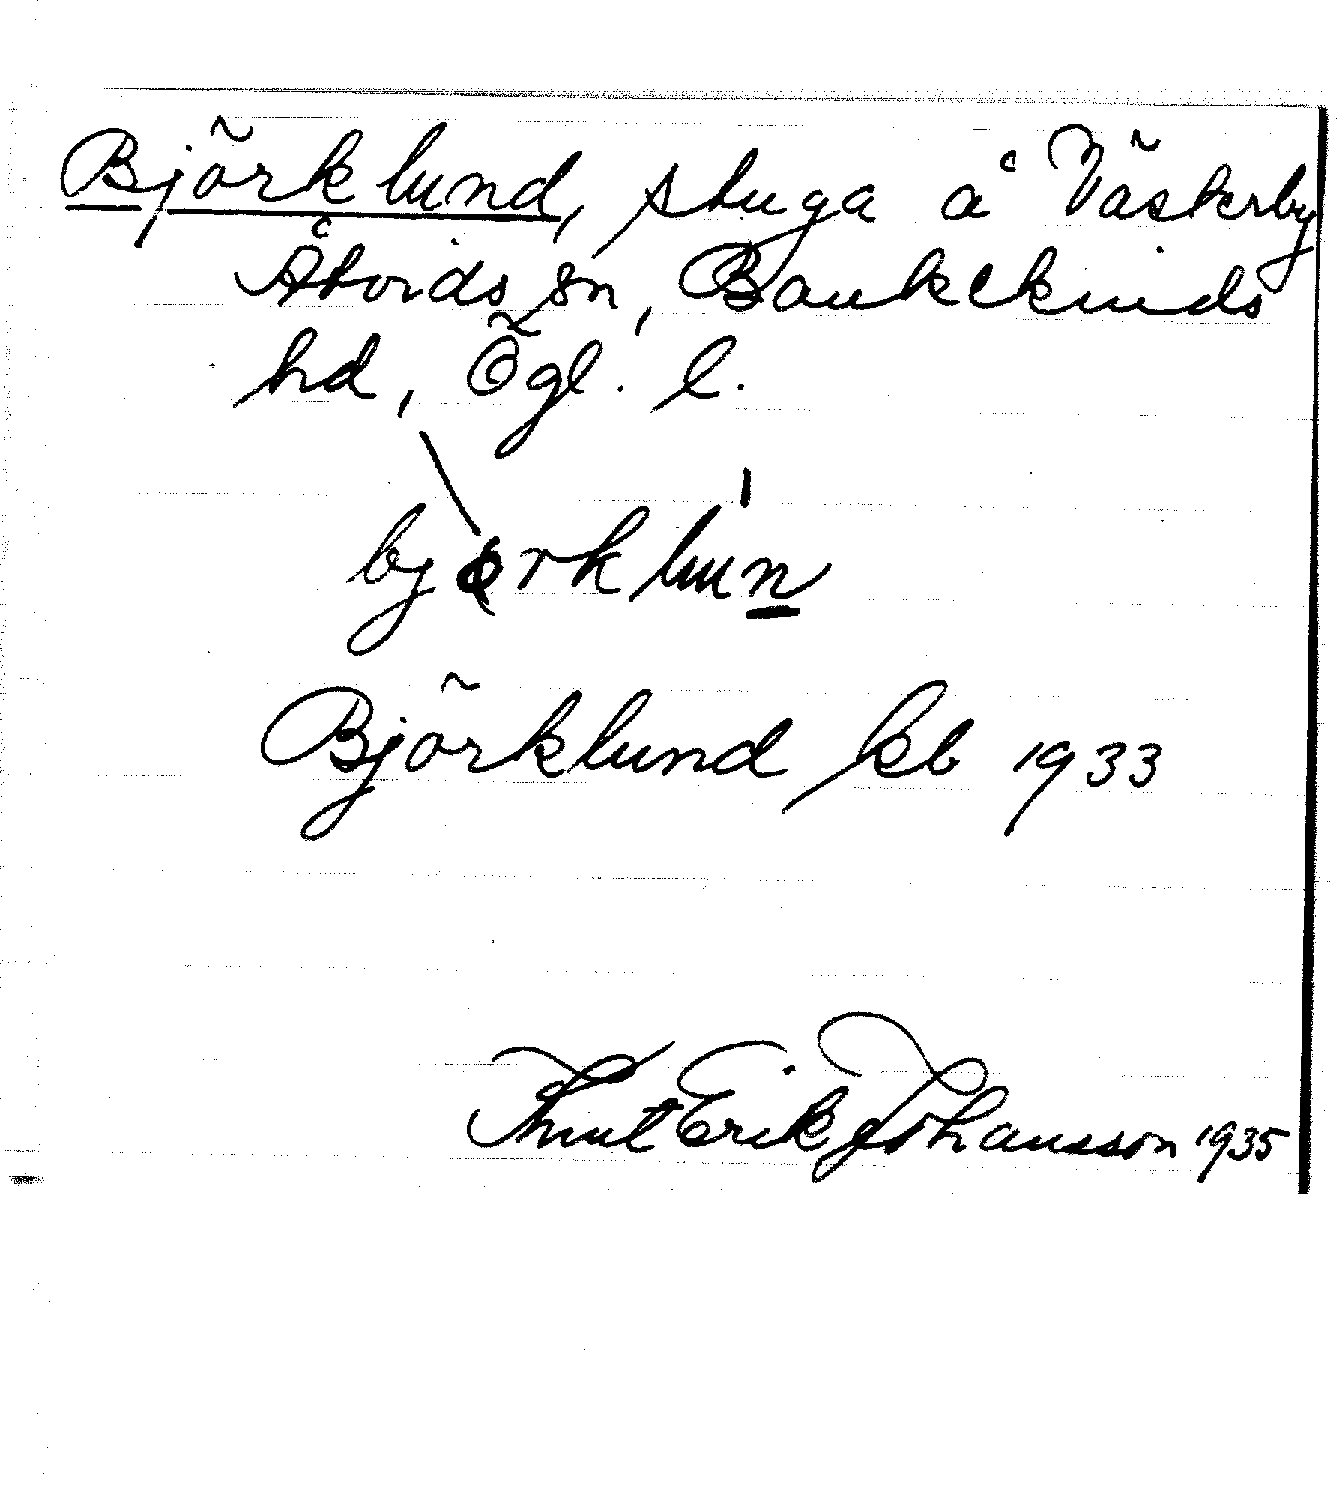 Björklund, stuga å Västerby
Åtvids sn, Bankekinds
hd, Ögl. l.
bjørklun
Björklund kb 1933
Knut Erik Johansson 1935